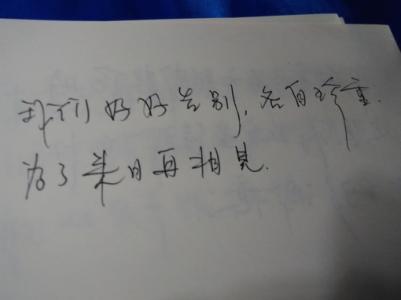 我们好好告别,各自珍重.
为了来日再相见.